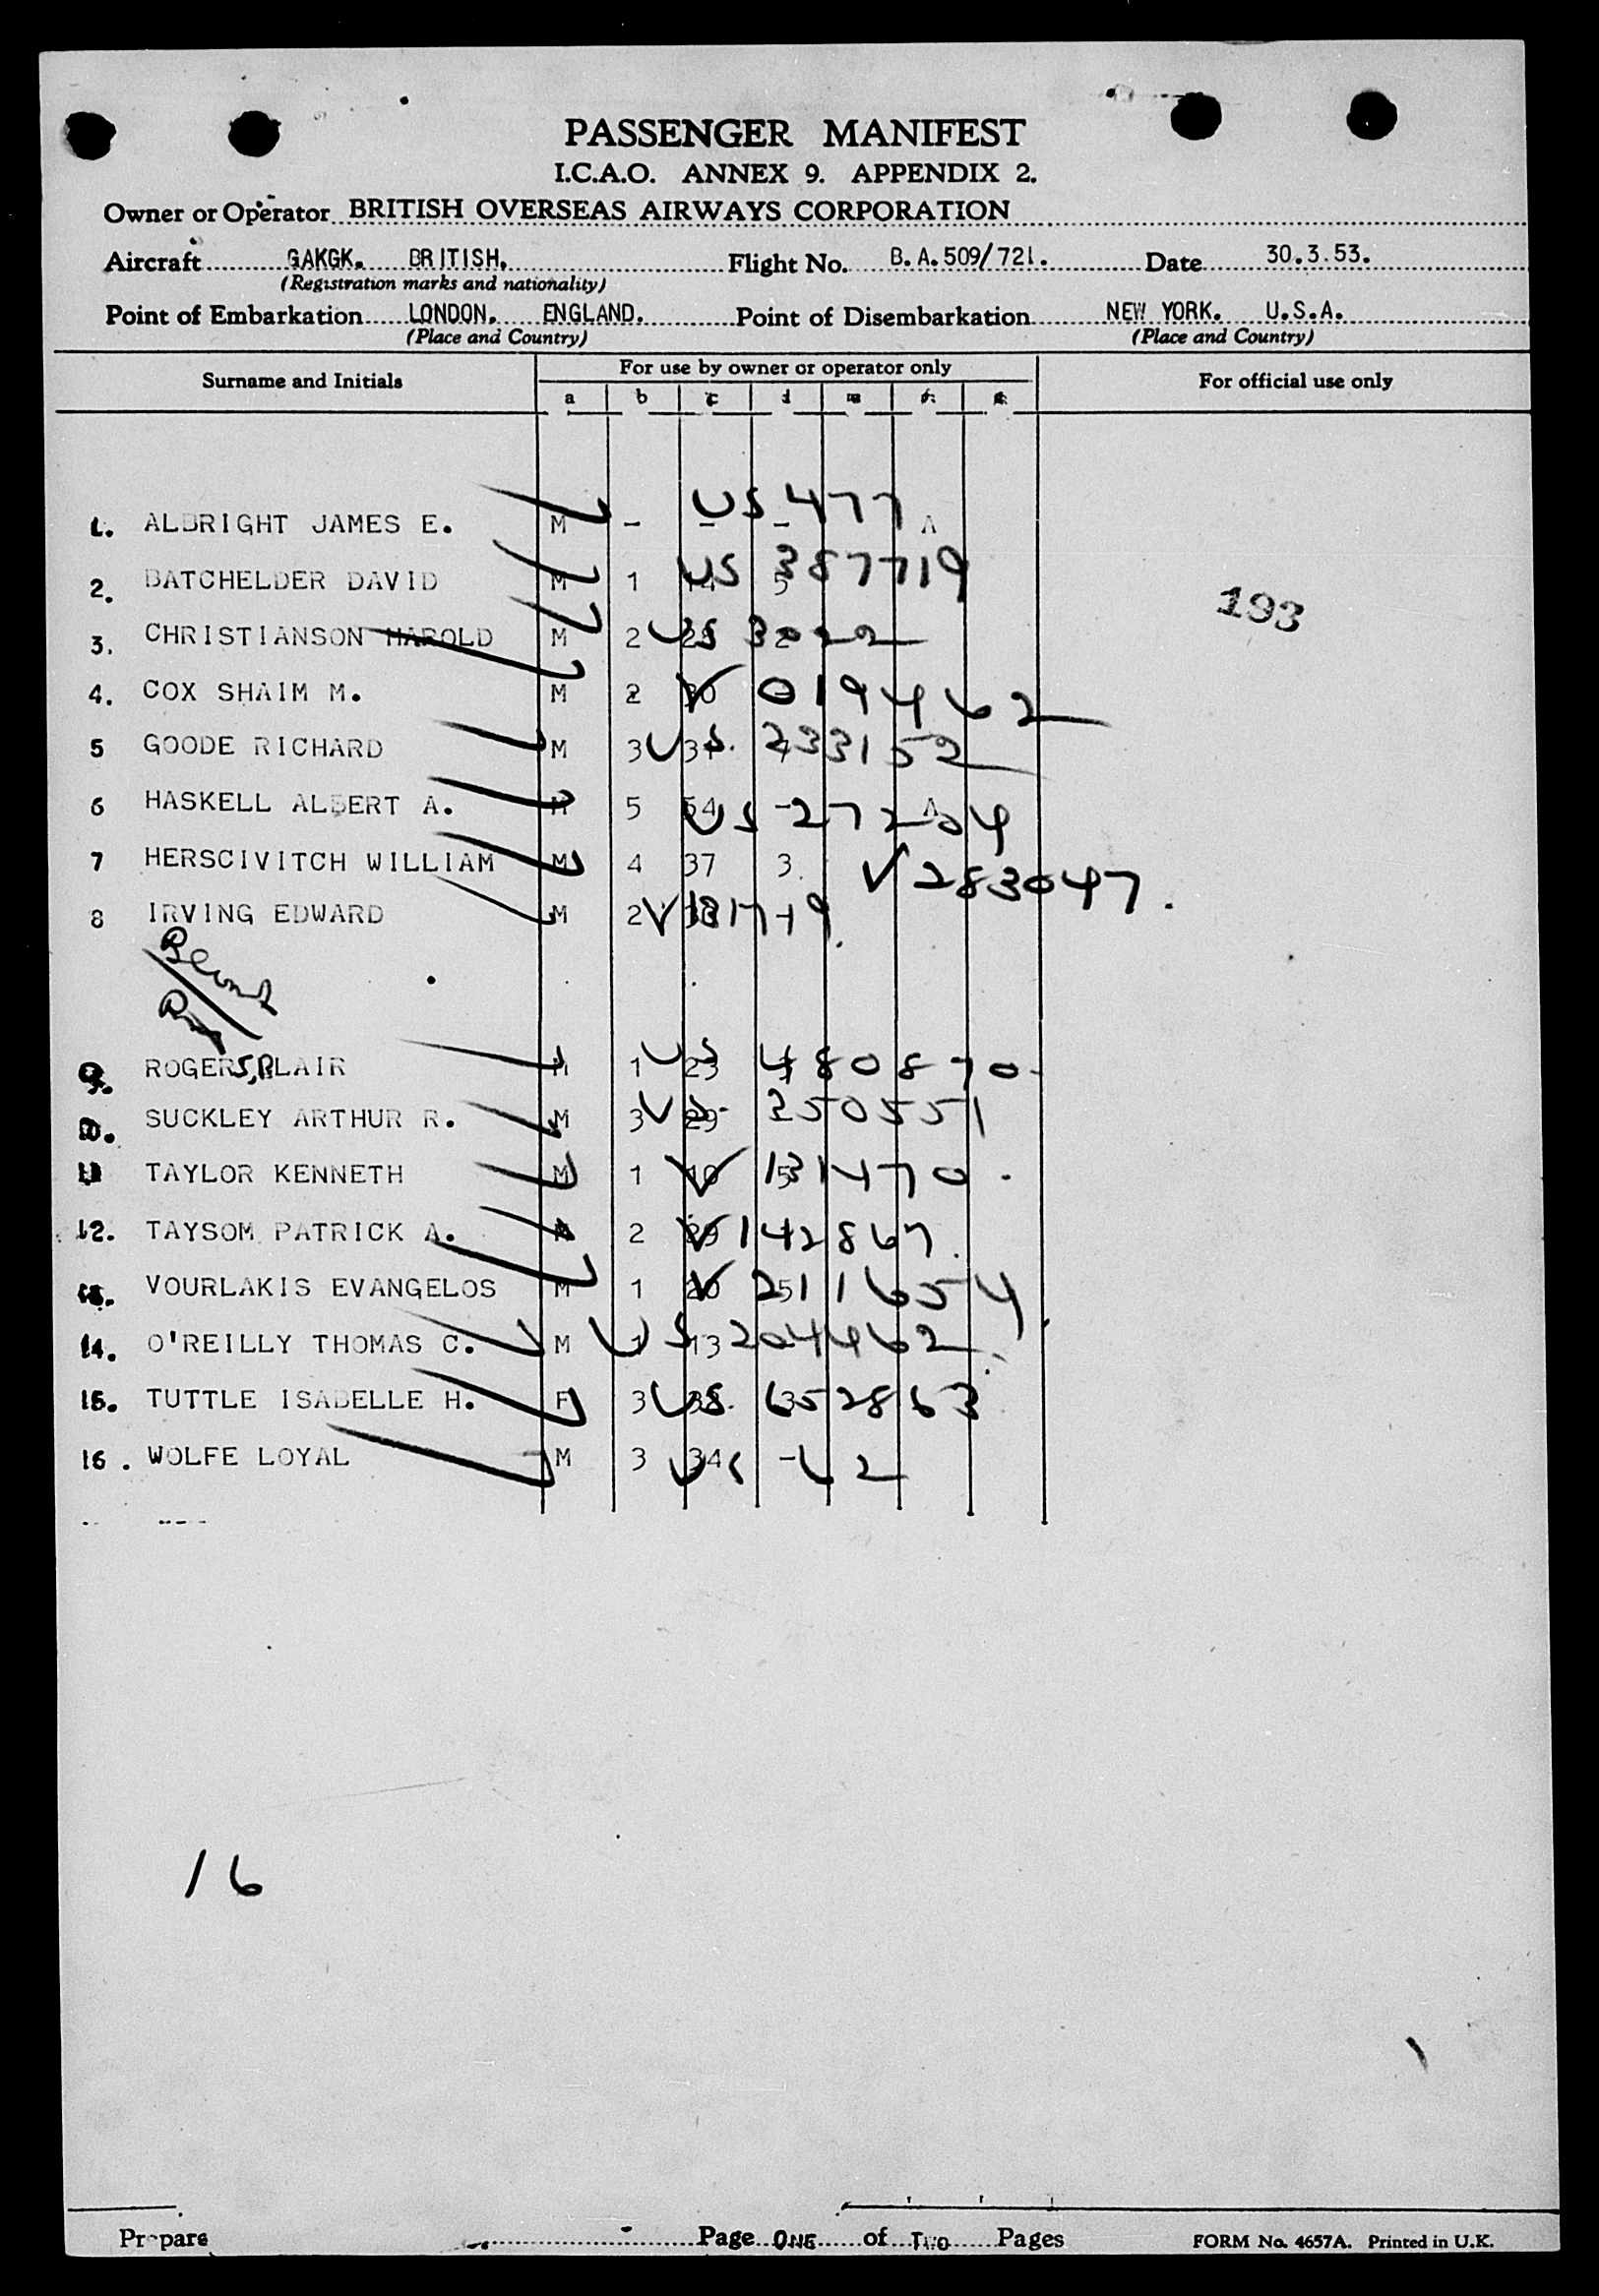 PASSENGER MANIFEST
I.C.A.O. ANNEX 9. APPENDIX 2.
Owner or Operator BRITISH OVERSEAS AIRWAYS CORPORATION
Aircraft GAKGK. BRITISH. Flight No. B.A.509/721. Date 30.3.53.
(Registration marks and nationality)
Point of Embarkation LONDON. ENGLAND. Point of Disembarkation NEW YORK. U.S.A.
(Place and Country) (Place and Country)
Surname and Initials For use by owner or operator only For official use only
a b c d
1. ALBRIGHT JAMES E. M - - - A US 477
2. BATCHELDER DAVID M 1 14 5 US 387719
193
3. CHRISTIANSON HAROLD M 2 US 3022
4. COX SHAIM M. M 2 30 V 0194462
5 GOODE RICHARD M 3 US. 233152
6 HASKELL ALBERT A. M 5 54 - A US 272204
7 HERSCIVITCH WILLIAM M 4 37 3. V 283047.
8 IRVING EDWARD M 2 V 181719.
9. ROGERS, BLAIR M 1 23 US 480870
10. SUCKLEY ARTHUR R. M 3 29 US 250551
11 TAYLOR KENNETH M 1 10 V 131470.
12. TAYSOM PATRICK A. M 2 V 142867.
13. VOURLAKIS EVANGELOS M 1 20 5 V 211654
14. O'REILLY THOMAS C. M 1 13 US 204462
15. TUTTLE ISABELLE H. F 3 US. 652863
16. WOLFE LOYAL M 3 34 - US 62
16
Page ONE of TWO Pages FORM No. 4657A. Printed in U.K.